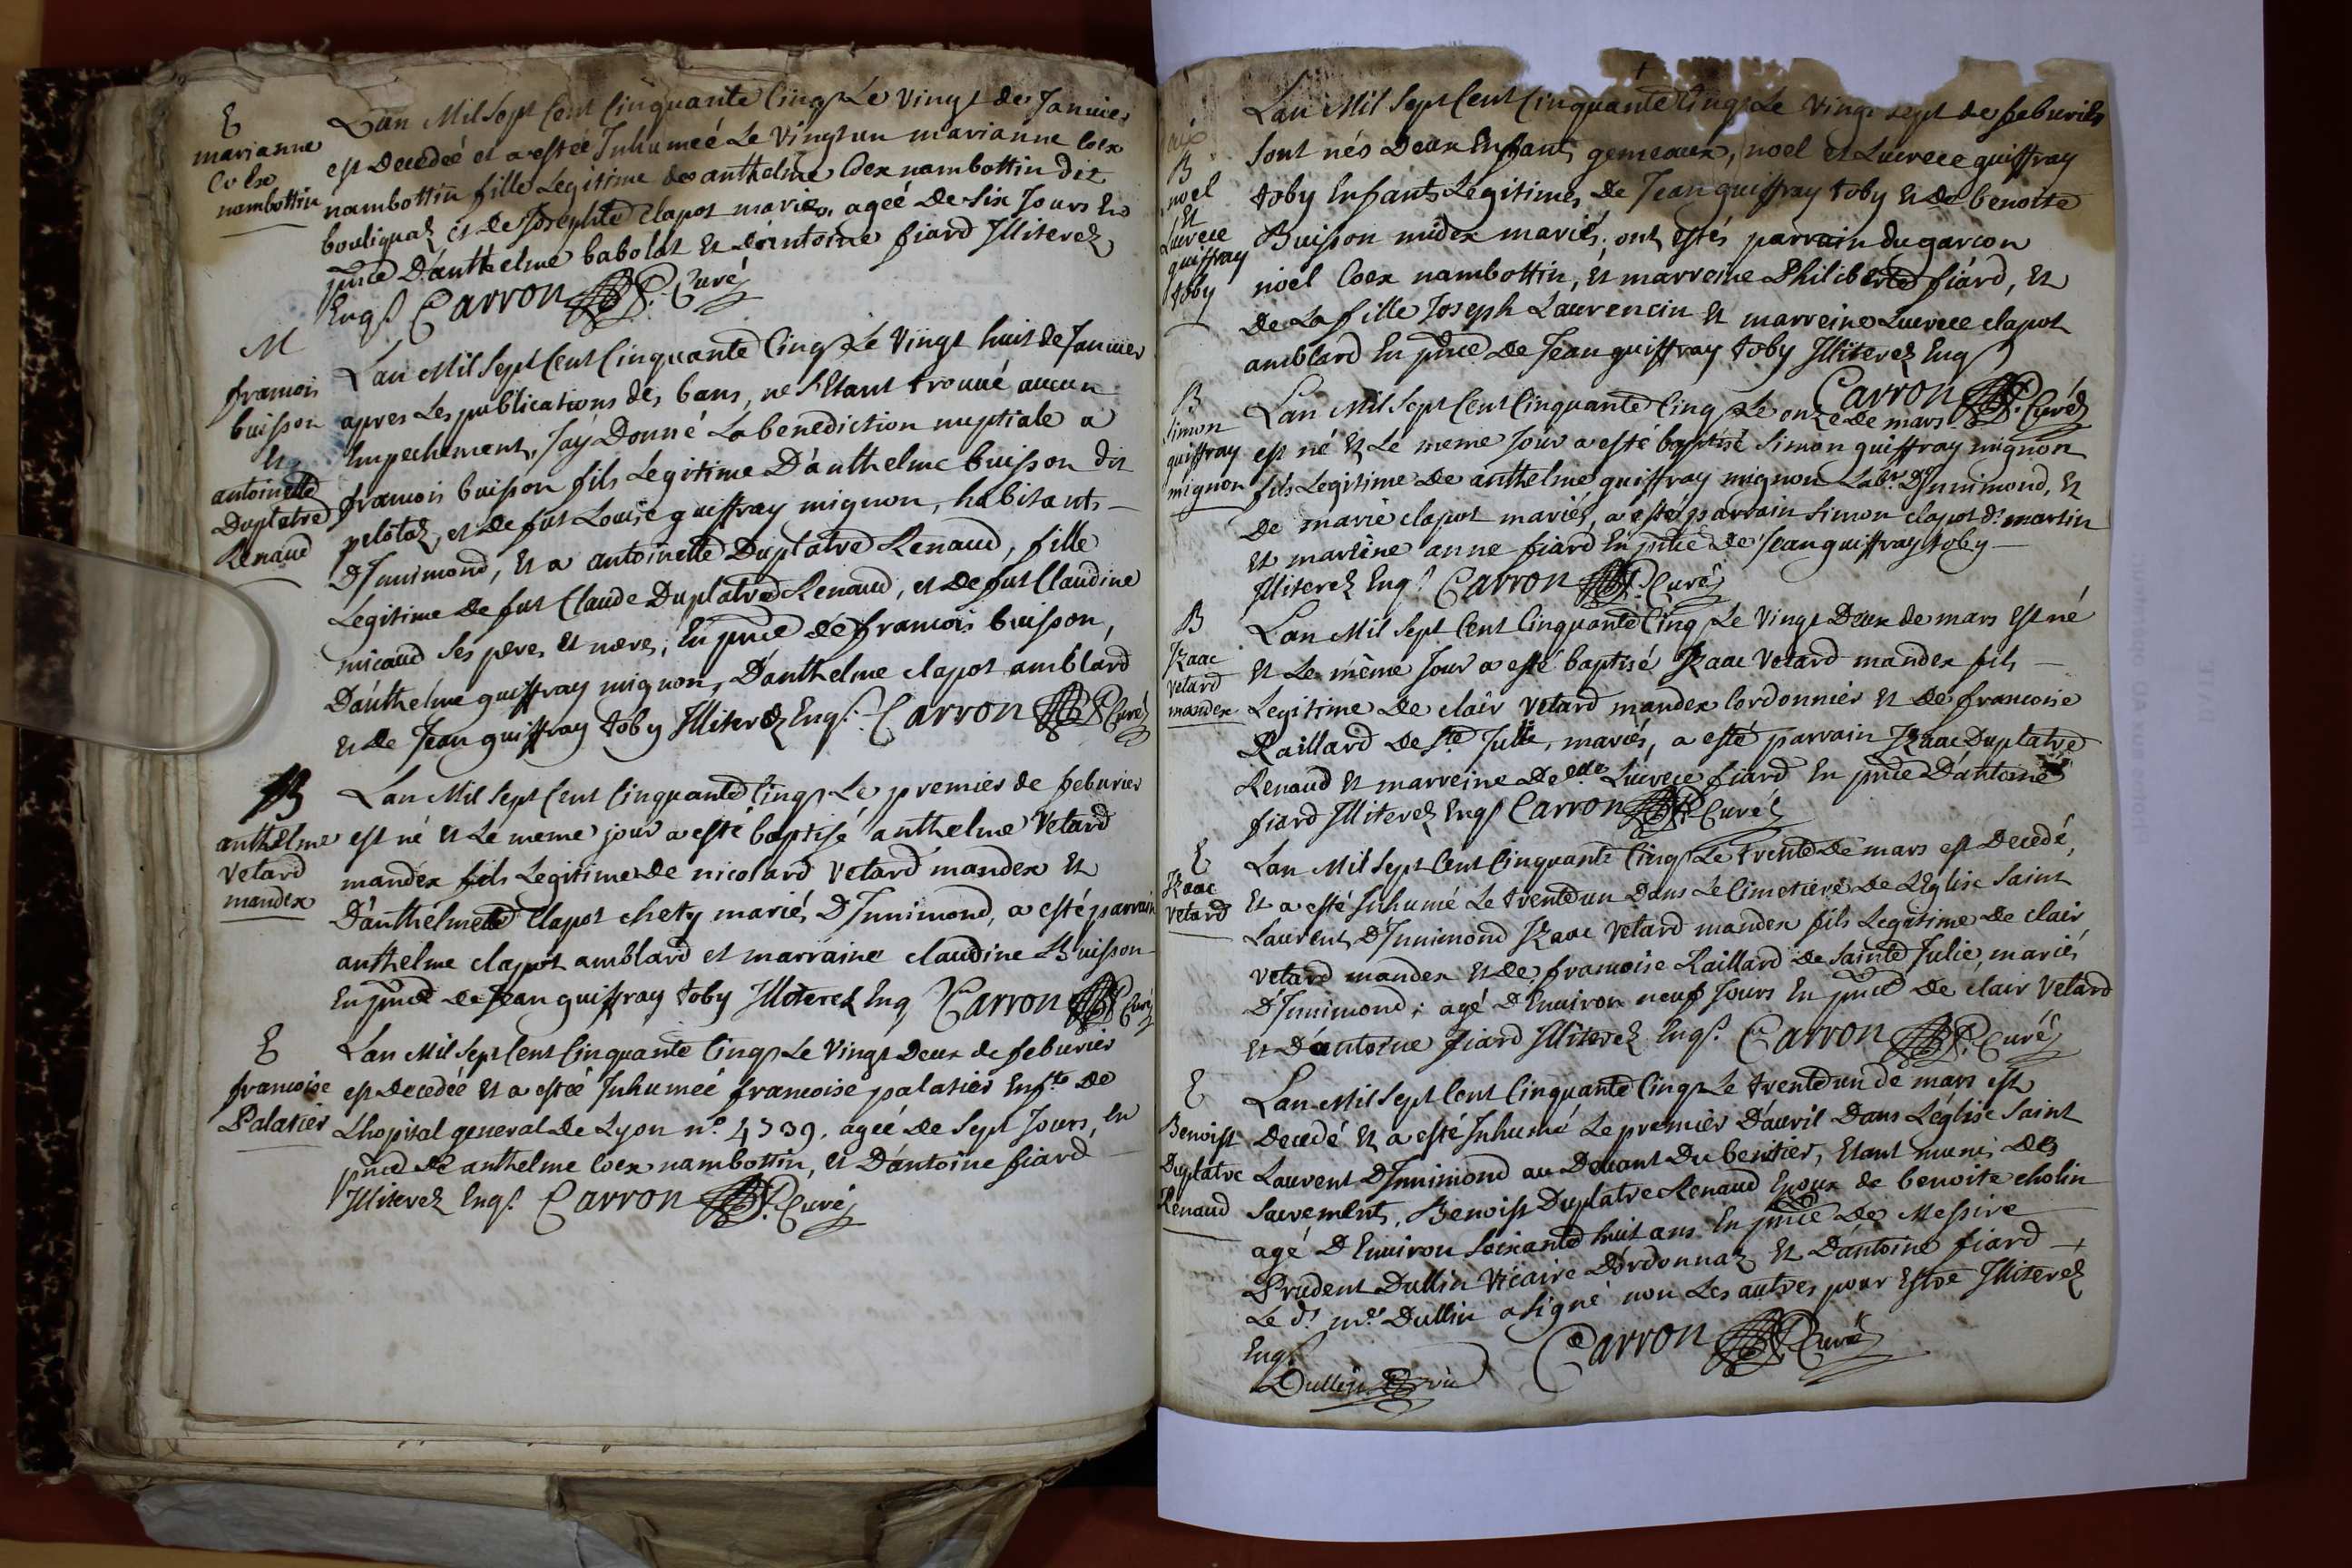 E
marianne
Coex
nambottin
Lan Mil Sept Cent Cinquante Cinq Le Vingt de Janvier
est Decedeé et a estéé Inhumeé Le Vingtun marianne Coex
nambottin fille Legitime de anthelme Coex nambottin dit
bouliquaz et de Josephte Clapot mariés, ageé de Six Jours En
pnce D'anthelme babolat et d'antoine fiard Illiterez
Enqs Carron Curé
M
francois
buisson
Et
antoinette
Duplatre
Renaud
Lan Mil Sept Cent Cinquante Cinq Le Vingt huit de Janvier
apres Les publications des bans, ne S'Etant trouvé aucun
Empechement, J'ay Donné La benediction nuptiale a
francois buisson fils Legitime D'anthelme buisson dit
pelotaz, et de fut Louise quiffray mignon, habitants
D'Innimond, Et a antoinette Duplatre Renaud, fille
Legitime de fut Claude Duplatre Renaud, et de fut Claudine
micaud Ses peres et meres; En pnce de francois buisson,
D'anthelme quiffray mignon, D'anthelme clapot amblard
et de Jean quiffray toby Illiterez Enqs. Carron Curé
B
anthelme
Vetard
mandex
Lan Mil Sept Cent Cinquante Cinq Le premier de feburier
est né et Le meme jour a esté baptisé anthelme Vetard
mandex fils Legitime de nicolard Vetard mandex et
D'anthelmette Clapot chety mariés D'Innimond, a esté parrain
anthelme clapot amblard et marraine claudine Buisson
En pnce de Jean quiffray toby Illiterez Enq Carron Curé
E
francoise
Palatier
Lan Mil Sept Cent Cinquante Cinq Le Vingt Deux de feburier
est Decedéé et a estéé Inhumeé francoise palatier Enfte De
Lhopital general de Lyon n°. 4739. ageé de Sept Jours, En
pnce de anthelme Coex nambottin, et D'antoine fiard
Illiterez Enqs. Carron Curé
B
noel
Et
Lucrece
quiffray
toby
Lan Mil Sept Cent Cinquante Cinq Le Vingt sept de feburier
Sont nés Deux Enfants gemeaux, noel et Lucrece quiffray
toby Enfants Legitimes De Jean quiffray toby et de benoite
Buisson midex mariés; ont estés parrain du garcon
noel Coex nambottin, et marreine Philiberte fiard, et
De La fille Joseph Laurencin et marreine Lucrece clapot
amblard En pnce de Jean quiffray toby Illiterez Enq
Carron Curé
B
Simon
quiffray
mignon
Lan Mil Sept Cent Cinquante Cinq Le onze de mars
est né et Le meme Jour a esté baptisé Simon quiffray mignon
fils Legitime de anthelme quiffray mignon Labr. D'Innimond, et
De marie clapot mariés, a esté parrain Simon clapot dt martin
et mareine anne fiard En pnce de Jean quiffray toby
Illiterez Enqs. Carron Curé
B
Izaac
Vetard
mandex
Lan Mil Sept Cent Cinquante Cinq Le Vingt Deux de mars Est né
et Le même Jour a esté baptisé Izaac Vetard mandex fils
Legitime de clair Vetard mandex Cordonnier et de francoise
Raillard de Ste Julie, mariés, a esté parrain Izaac Duplatre
Renaud et marreine Delle Lucrece fiard En pnce D'antoine
fiard Illiterez Enqs Carron Curé
E
Izaac
Vetard
Lan Mil Sept Cent Cinquante Cinq Le trente de mars est Decedé,
Et a esté Inhumé Le trenteun Dans Le Cimetiere de L'Eglise Saint
Laurent D'Innimond Izaac Vetard mandex fils Legitime de clair
Vetard mandex et de francoise Raillard de Sainte Julie, mariés
D'Innimond; agé D'Environ neuf Jours En pnce de clair Vetard
et D'antoine fiard Illiterez Enqs. Carron Curé
E
Benoist
Duplatre
Renaud
Lan Mil Sept Cent Cinquante Cinq Le trenteun de mars est
Decedé et a esté Inhumé Le premier D'avril Dans L'église Saint
Laurent D'Innimond au Devant Du benitier, Etant muni des
Sacrements, Benoist Duplatre Renaud Epoux de benoite cholin
agé D'Environ Soixante huit ans En pnce De Messire
Prudent Dullin Vicaire D'ordonnaz et D'antoine fiard
Le dt. mre. Dullin a signé non Les autres pour Estre Illiterez
Enqs
Carron Curé
Dullin vic